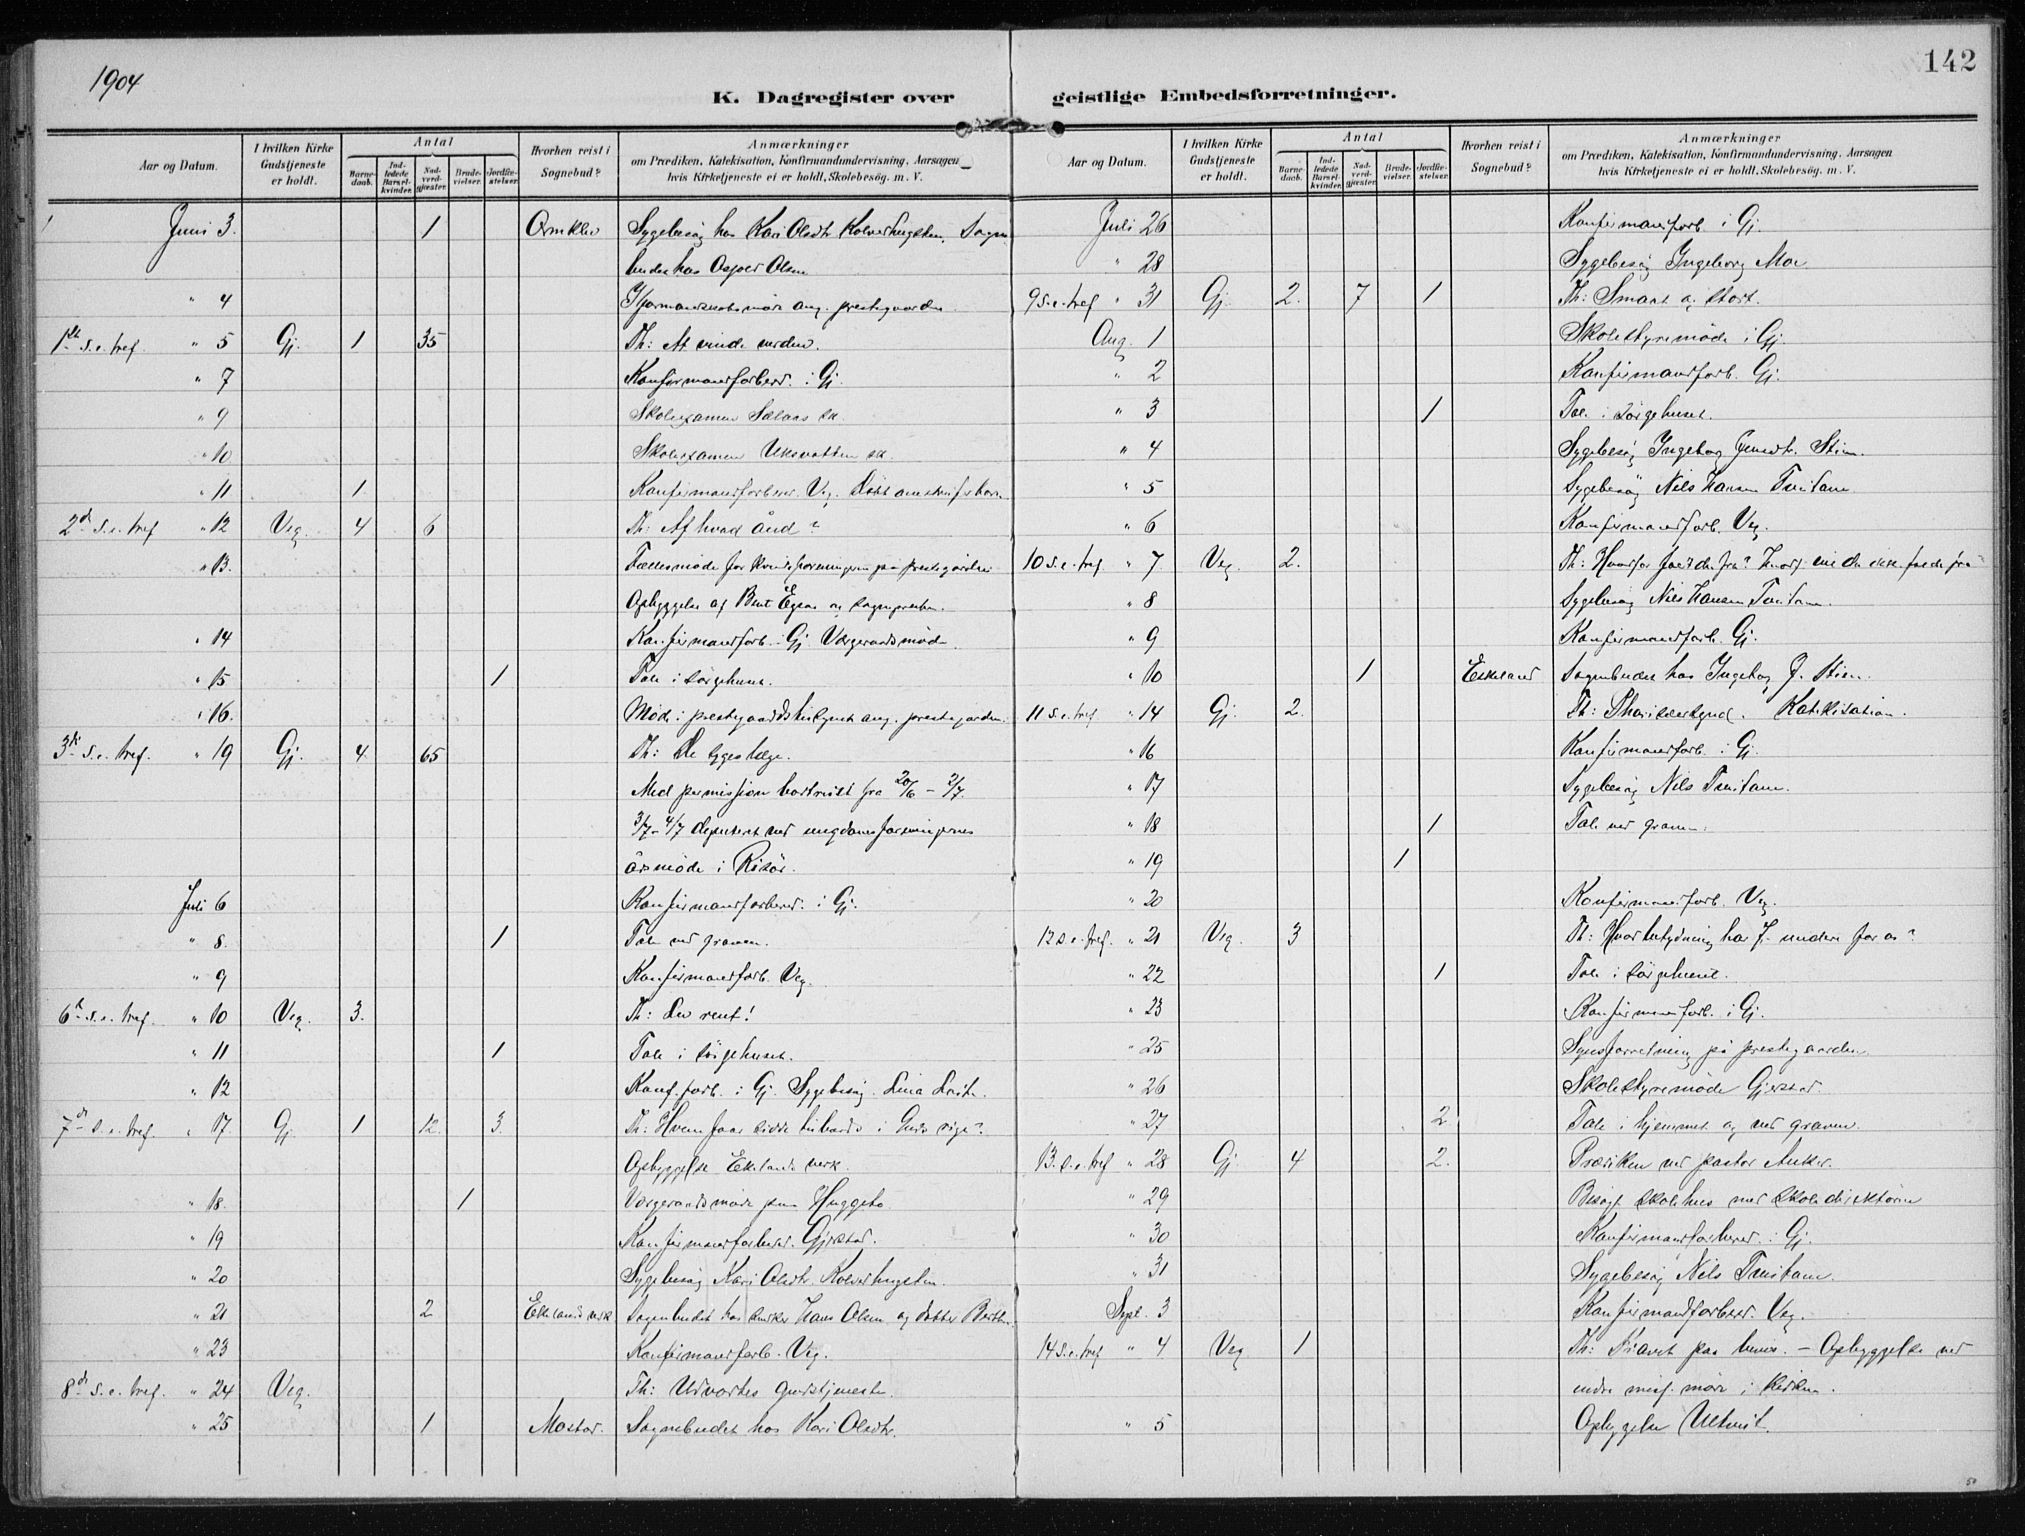 1904
142
K. Dagregister over geistlige Embedsforretninger.
Aar og Datum. I hvilken Kirke Gudstjeneste er holdt. Antal Barnedaab. Indledede Barselkvinder. Nadverdgjæster. Brudevielser. Jordfæstelser. Hvorhen reist i Sognebud? Anmærkninger om Prædiken, Katekisation, Konfirmandundervisning, Aarsagen hvis Kirketjeneste ei er holdt, Skolebesøg, m. V.
Juni 3. 1 Ormklev Sygebesøg hos Kari Olsdtr. Sogne
budet hos Olsen
" 4 Formandskabsmøde ang. prestegaarden.
1ste S. e. tref. " 5 Gj. 1 35 Th: At vinde verden.
" 7 Konfirmandforbered. i Gj.
" 9 Skolexamen sk.
" 10 Skolexamen sk.
" 11 1 Konfirmandforbered. Veg. Døbt barn
2d S. e. tref " 12 Veg. 4 6 Th: Af hvad ånd?
" 13. Fællesmøde for kvindeforeningen på prestegården
Opbyggelse af Bent og sogneprесten.
" 14 Konfirmandforb. i Gj. Værgeraadsmøde.
" 15 1 Tale i sørgehuset.
" 16. Møde i ang. prestegården.
3die S. e. tref. " 19 Gj. 4. 65 Th: De syges læge.
Med permission bortreist fra 20/6 - 2/7.
3/7 - 4/7 deputeret ved ungdomsforeningernes
årsmøde i Risør.
Juli 6 Konfirmandforbered. i Gj.
" 8. 1 Tale ved graven.
" 9 Konfirmandforb. Veg.
6te S. e. tref. " 10 Veg. 3. Th: Lev rent!
" 11 1 Tale i sørgehuset.
" 12 Konf. forb. i Gj. Sygebesøg.
7de S. e. tref. " 17. Gj. 1 12. 3. Th: Hvem faar sidde tilbords i Guds rige?
Opbyggelse Ekelands verk.
" 18. 1 Værgeraadsmøde paa
" 19 Konfirmandforbered. Gjerstad.
" 20 Sygebesøg Kari Olsdtr.
" 21 2 Ekelands verk Sognebudet hos Hans Olsen og datter
" 23 Konfirmandforb. Veg.
8de S. e. tref. " 24 Veg. Th: Udvortes gudstjeneste.
" 25 1 Mostad. Sognebudet hos Kari Olsdtr.
Aar og Datum. I hvilken Kirke Gudstjeneste er holdt. Antal Barnedaab. Indledede Barselkvinder. Nadverdgjæster. Brudevielser. Jordfæstelser. Hvorhen reist i Sognebud? Anmærkninger om Prædiken, Katekisation, Konfirmandundervisning, Aarsagen hvis Kirketjeneste ei er holdt, Skolebesøg, m. V.
Juli 26 Konfirmandforb. i Gj.
" 28 Sygebesøg Ingeborg Moe.
9 S. e. tref " 31 Gj. 2. 7 1 Th: Smaat og stort.
Aug. 1 Skolestyremøde i Gj.
" 2 Konfirmandforb. Gj.
" 3 1 Tale i sørgehuset.
" 4 Sygebesøg Ingeborg
" 5 Sygebesøg Nils Hansen
" 6 Konfirmandforb. Veg.
10 S. e. tref " 7 Veg. 2. Th: Hvorfor
" 8 Sygebesøg Nils Hansen
" 9 Konfirmandforb. Gj.
" 10 1 Eskeland Sognebudet hos Ingeborg J. Stien.
11 S. e. tref " 14 Gj. 2. Th: Katekisation.
" 16 Konfirmandforb. i Gj.
" 17 Sygebesøg Nils
" 18 1 Tale ved graven.
" 19 1
" 20 Konfirmandforb. Veg.
12 S. e. tref. " 21 Veg. 3 Th: Hvor betydning har J. undere for os?
" 22 1 Tale i sørgehuset.
" 23 Konfirmandforb. i Gj.
" 25 Synsforretning på prestegaarden
" 26 Skolestyremøde Gjerstad.
" 27 2 Tale i hjemmet og ved graven.
13 S. e. tref " 28 Gj 4 2. Præken ved pastor Anker.
" 29 Besøgt skolehus med skoledirektøren
" 30 Konfirmandforbered. i Gj.
" 31 Sygebesøg Nils
Sept. 3 Konfirmandforbered. Veg.
14 S. e. tref " 4 Veg 1 Th: paa – Opbyggelse ved
indre miss. møde i kirken.
" 5 Opbyggelse
50